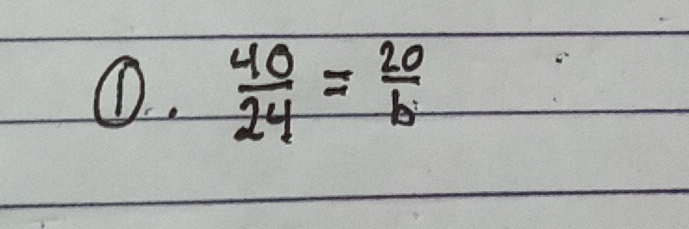 ①. 40/24 = 20/b